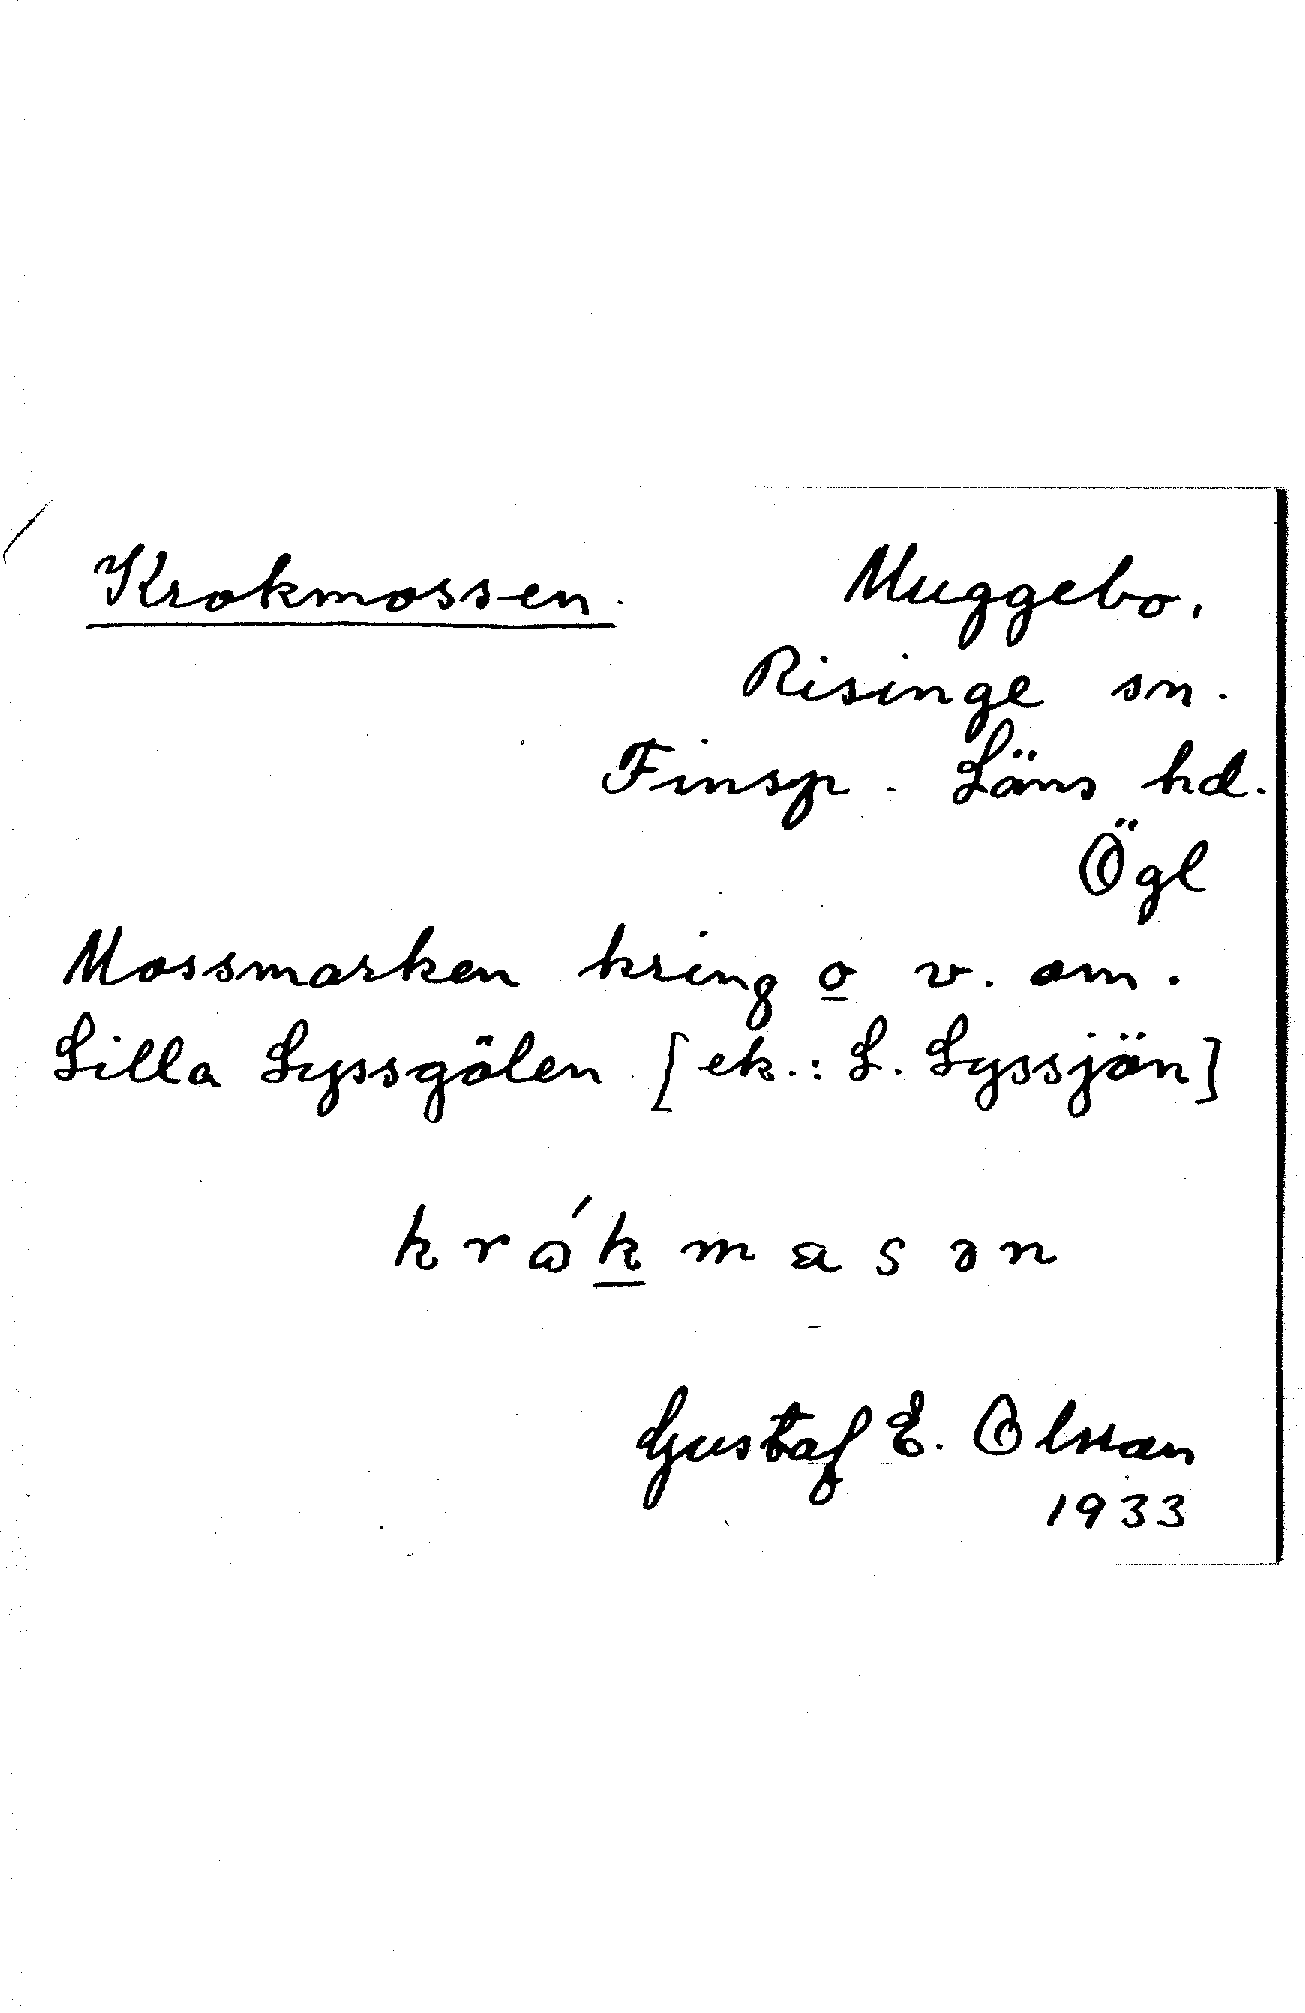 Krokmossen. Muggebo,
Risinge sn.
Finsp. Läns hd.
Ögl
Mossmarken kring o v. om.
Lilla Lyssgölen [ek.: L. Lyssjön]
krɷ́kmasən
Gustaf E. Olsson
1933